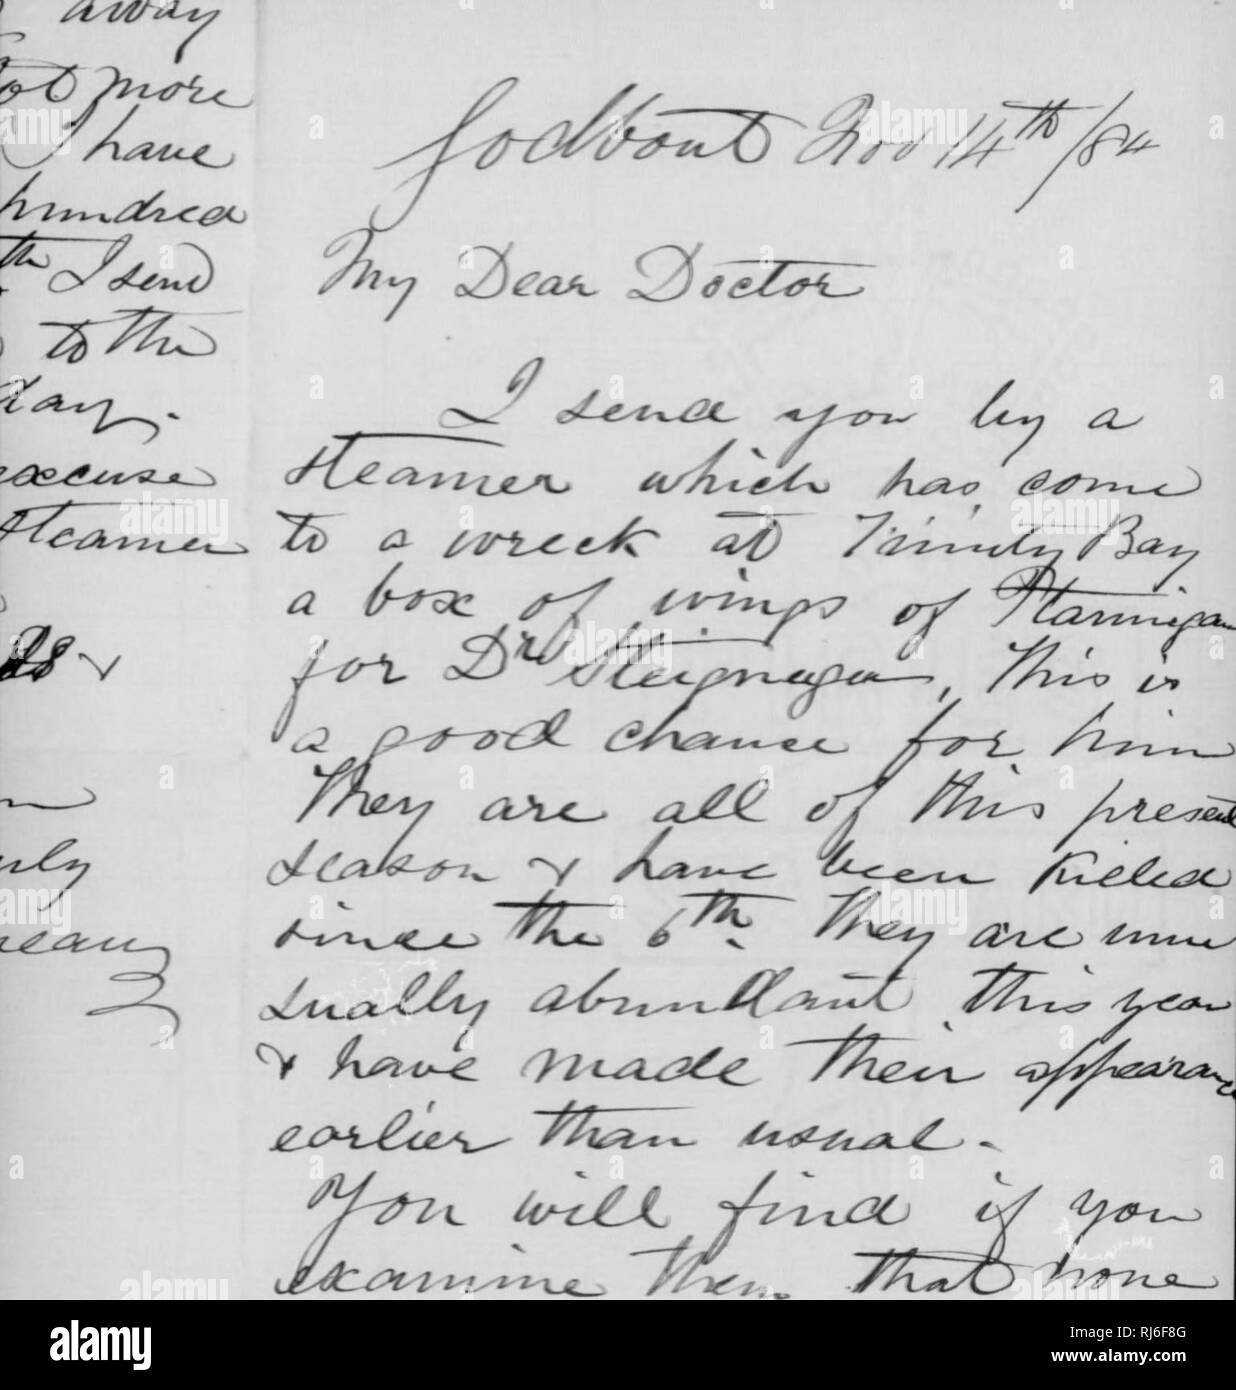 away
not more
I have
hundred
th I send
to the
day.
excuse
steamer
&
Godbout Nov 14th /84
My Dear Doctor
I send you by a
steamer which has come
to a wreck at Trinity Bay
a box of wings of Ptarmigan
for Dr Stejneger, This is
a good chance for him
They are all of this present
season & have been killed
since the 6th. They are unu
sually abundant this year
& have made their appearance
earlier than usual -
You will find if you
examine them that none
alamy
Image ID: RJ6F8G
www.alamy.com